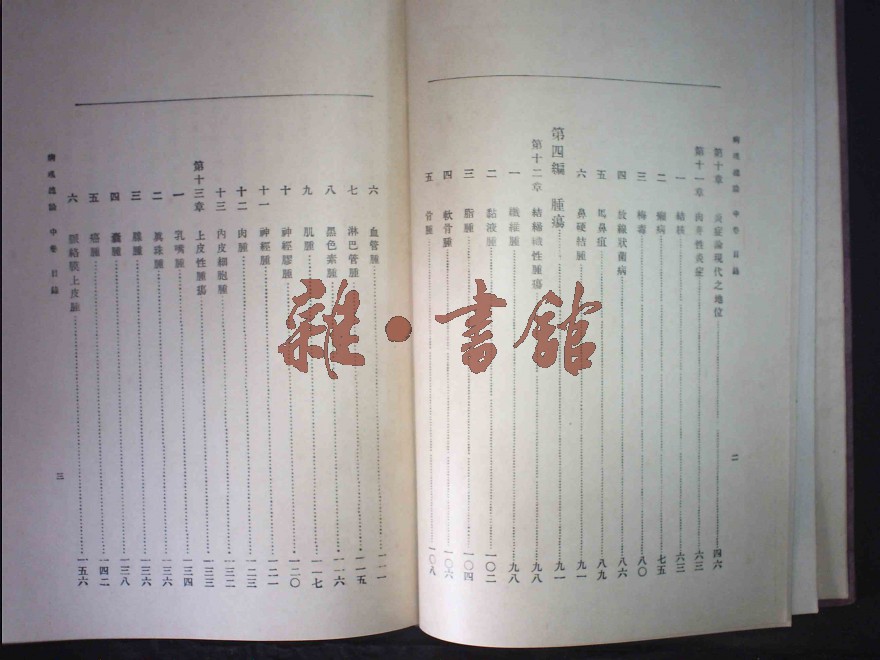 病理總論 中卷 目錄
第十章 炎症論現代之地位 四六
第十一章 肉芽性炎症 六三
一 結核 六三
二 癩病 七五
三 梅毒 八〇
四 放線狀菌病 八六
五 馬鼻疽 八九
六 鼻硬結腫 九一
第四編 腫瘍 九一
第十二章 結締織性腫瘍 九八
一 纖維腫 九八
二 黏液腫 一〇二
三 脂腫 一〇四
四 軟骨腫 一〇六
五 骨腫 一〇八
二
六 血管腫 一一一
七 淋巴管腫 一一五
八 黑色素腫 一一六
九 肌腫 一一七
十 神經膠腫 一二〇
十一 神經腫 一二一
十二 肉腫 一二三
十三 內皮細胞腫 一三二
第十三章 上皮性腫瘍 一三三
一 乳嘴腫 一三四
二 真珠腫 一三六
三 腺腫 一三六
四 囊腫 一三八
五 癌腫 一四二
六 脈絡膜上皮腫 一五六
病理總論 中卷 目錄
三
雜·書館